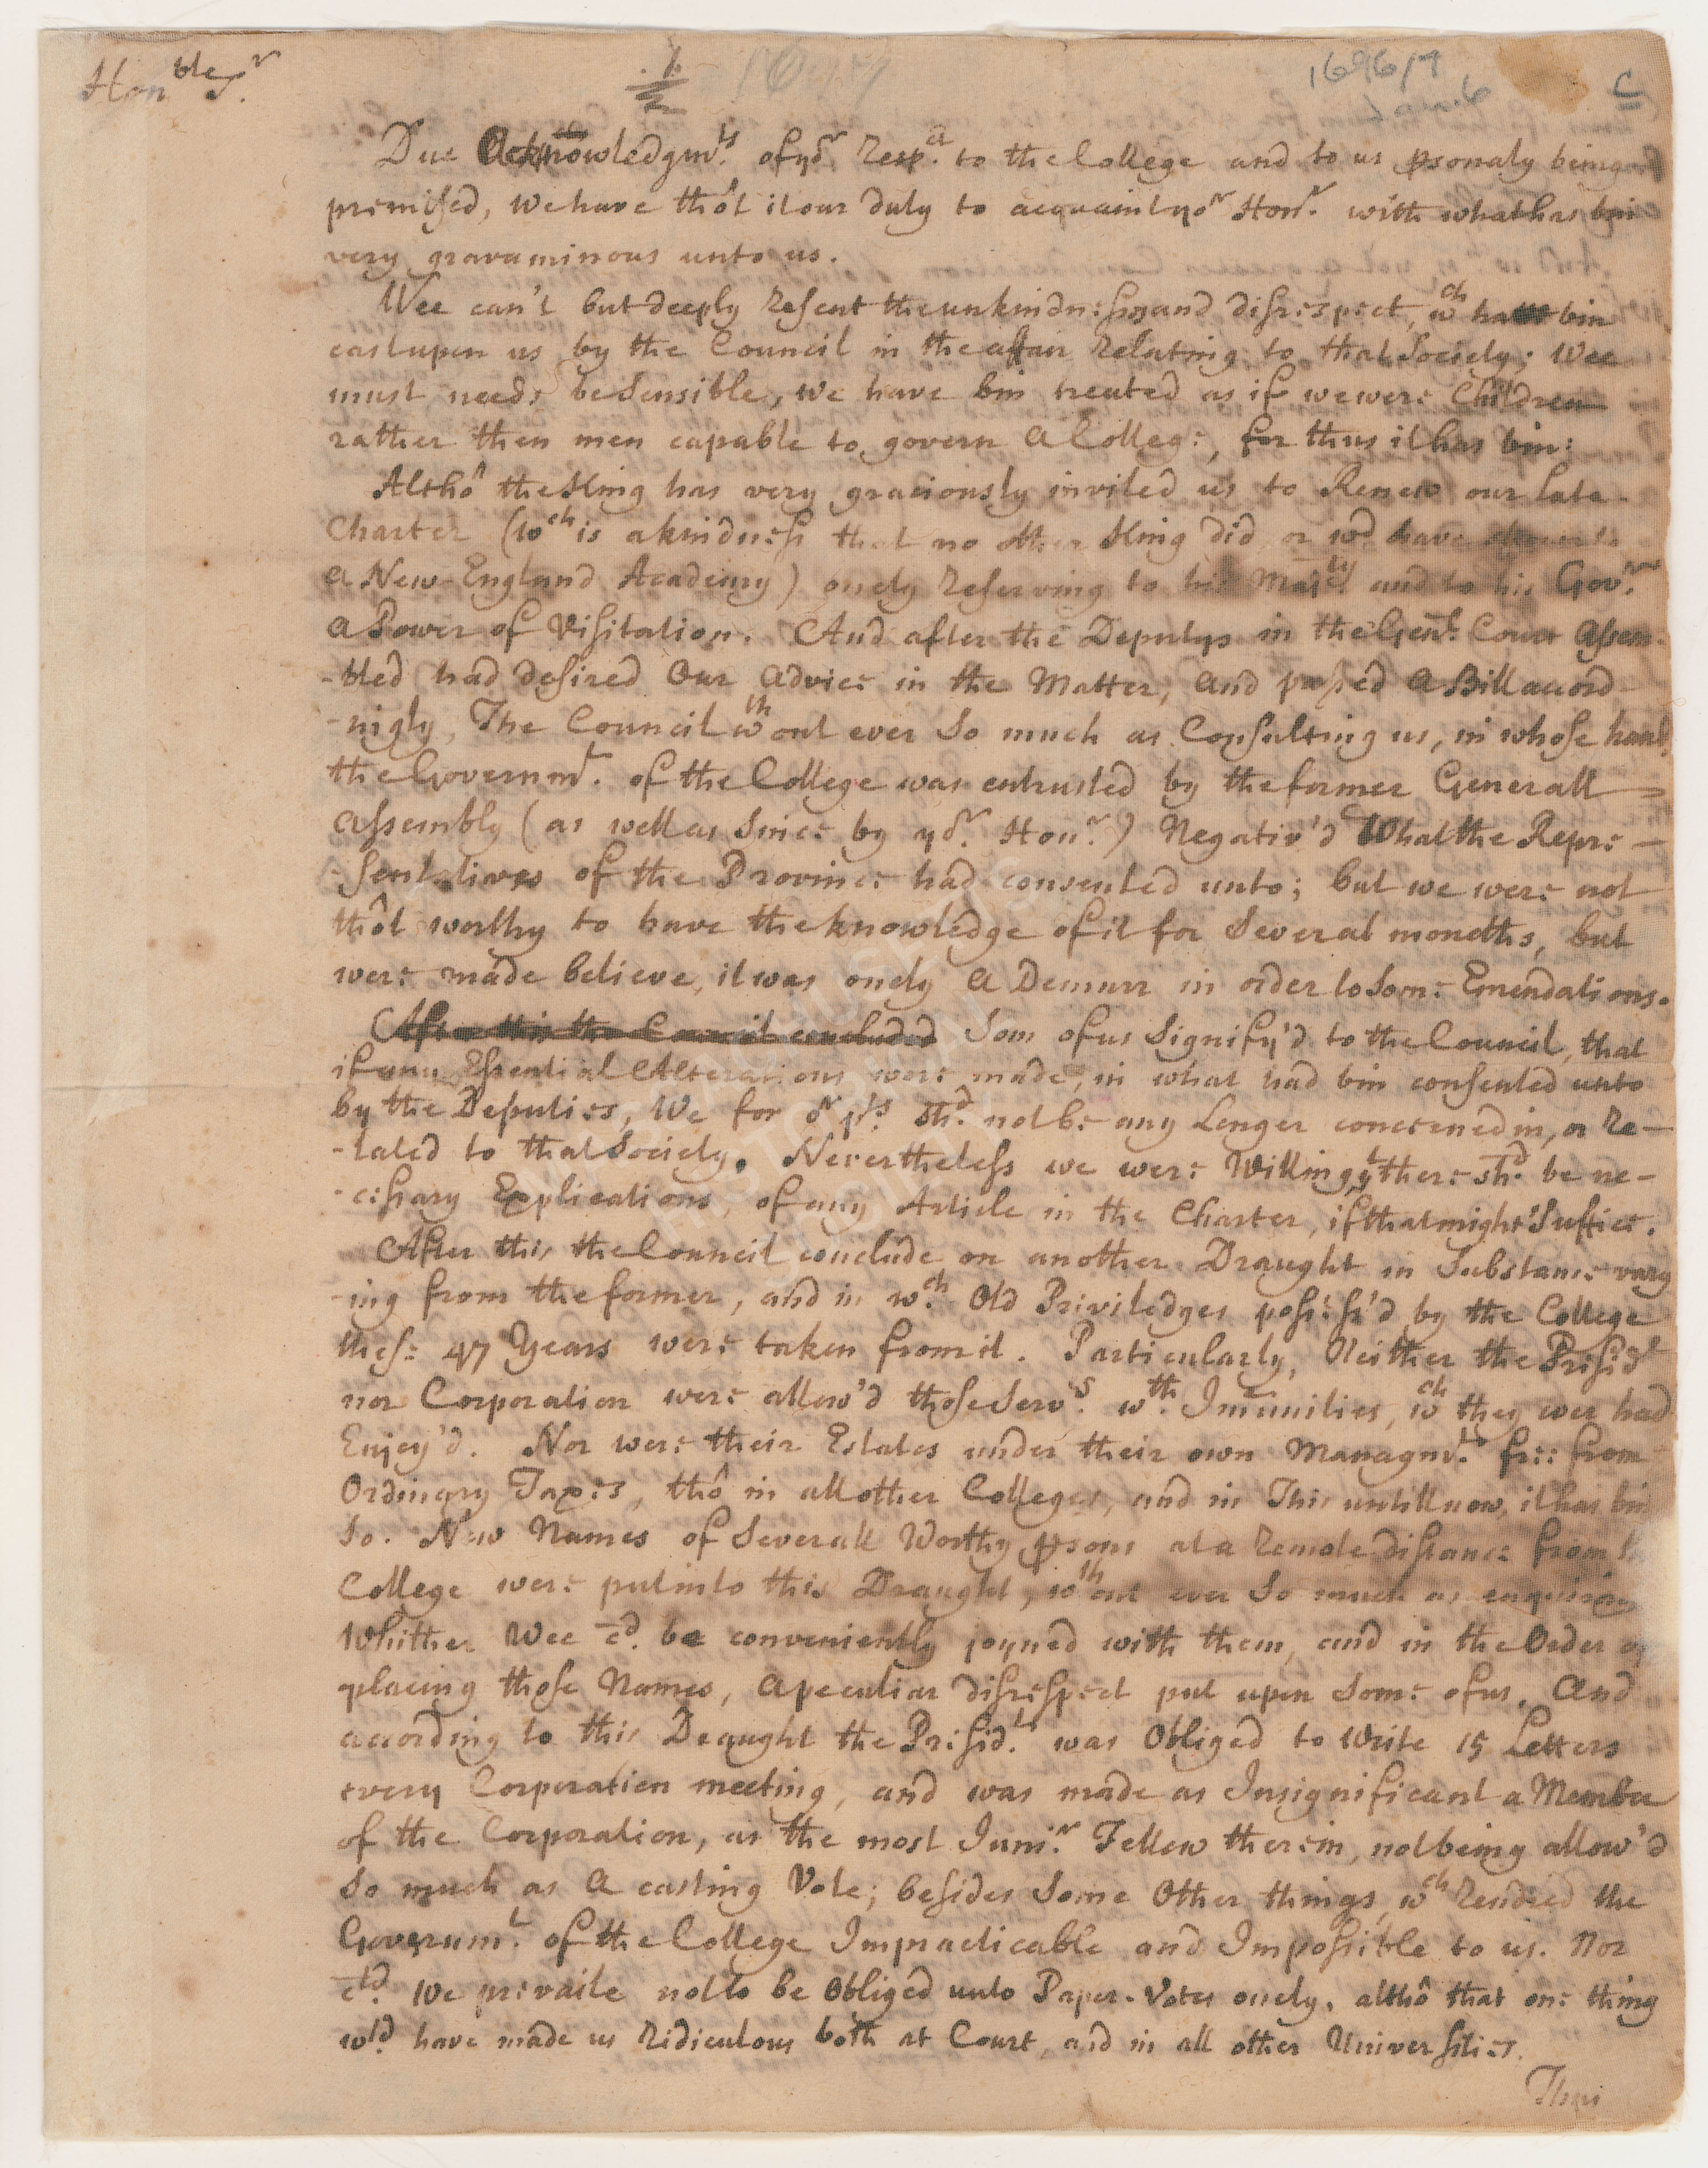 Hon^ble S^r.
1696/7
Jan. 6
C
Due Acknowledgm^ts. of yo^r Resp^ct. to the College and to us psonaly being
premised, We have thôt it our duty to acquaint yo^r Hon^r. with what has bin
very gravaminous unto us.
Wee can't but deeply Resent the unkindness and disrespect, w^ch hath bin
cast upon us by the Council in the affair Relating to that Society; Wee
must needs be Sensible, we have bin treated as if we were Children
rather then men capable to govern a College, for thus it has bin:
Althô the King has very graciously invited us to Renew our late
Charter (w^ch is a kindness that no other King did or w^d have shown to
a New-England Academy) onely Reserving to his Maj^ty and to his Gov^rs
a Power of Visitation. And after the Deputys in the Gen^ll. Court Assem-
-bled had desired Our Advice in the Matter, and passed a Bill accord-
-ingly, The Council w^thout ever So much as Consulting us, in whose hands
the Governm^t. of the College was entrusted by the former Generall
Assembly (as well as Since by yo^r. Hon^r.) Negativ'd What the Repre-
-sentatives of the Province had consented unto; but we were not
thôt worthy to have the knowledge of it for Several moneths, but
were made believe, it was onely a Demurr in order to Some Emendations.
After this the Council concluded Som of us Signify'd to the Council, that
if any Essential Alterations were made, in what had bin consented unto
by the Deputies, We for o^r p^ts. sh^d. not be any Longer concerned in, or Re-
-lated to that Society. Nevertheless we were Willing, y^t there sh^d. be ne-
-cessary Explications, of any Article in the Charter, if that might Suffice.
After this the Council conclude on another Draught in Substance vary
-ing from the former, and in w^ch. Old Priviledges possess'd by the College
these 47 Years were taken from it. Particularly, Neither the Presid^t
nor Corporation were allow'd those Serv^ts. w^th. Imunities, w^ch they ever had
Enjoy'd. Nor were their Estates under their own Managm^t. free from
Ordinary Taxes, thô in all other Colleges, and in This untill now, it has bin
so. New Names of Severall Worthy psons at a Remote distance from the
College were put into this Draught, w^thout ever So much as enquiring
Whither Wee c^d. be conveniently joyned with them, and in the Order of
placing those Names, a peculiar disrespect put upon Some of us. And
according to this Draught the Presid^t. was Obliged to Write 15 Letters
every Corporation meeting, and was made as Insignificant a Member
of the Corporation, as the most Juni^r. Fellow therein, not being allow'd
So much as a casting Vote; besides Some Other things, w^ch Rendred the
Governm^t. of the College Impracticable and Impossible to us. Nor
c^ld. We prevaile not to be Obliged unto Paper-Votes onely, althô that one thing
w^ld. have made us Ridiculous both at Court, and in all other Universities.
Thus